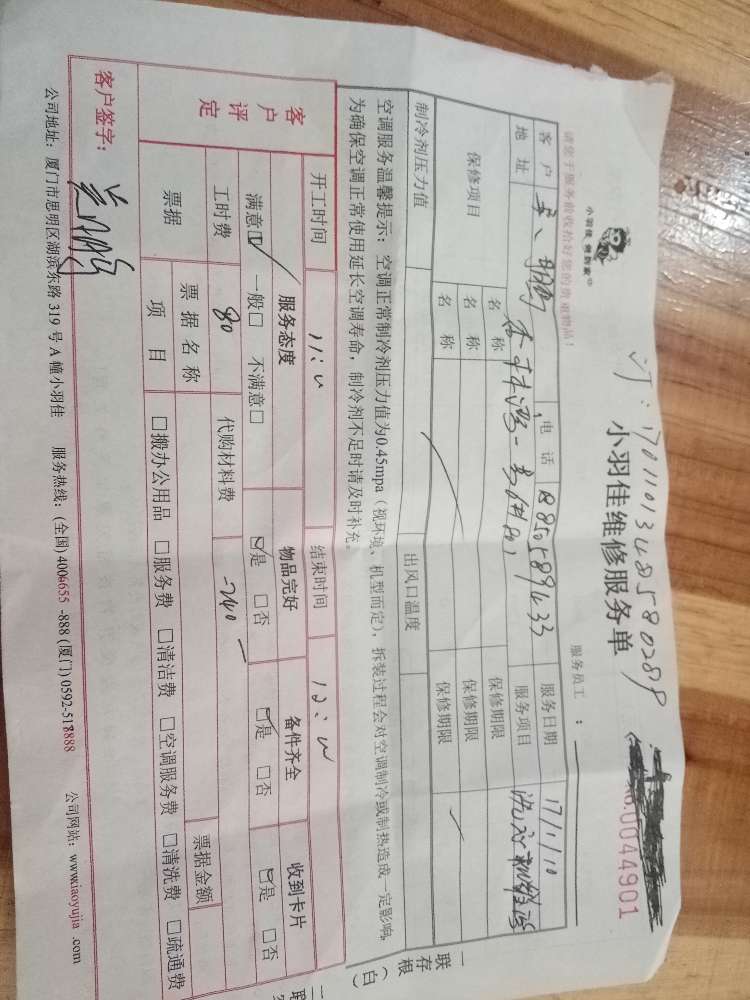 订:17011013485580289
小羽佳 管到家
小羽佳维修服务单
0044901
请您于服务前收拾好您的贵重物品!
服务员工:
客户 电话 服务日期 17/1/10
地址 服务项目
保修项目 名称 保修期限
名称 保修期限
名称 保修期限
制冷剂压力值 出风口温度
空调服务温馨提示:空调正常制冷剂压力值为0.45mpa(视环境、机型而定),拆装过程会对空调制冷或制热造成一定影响,
为确保空调正常使用延长空调寿命,制冷剂不足时请及时补充。
一联存根(白)
开工时间 11:00 结束时间 12:00
客户评定 服务态度 物品完好 备件齐全 收到卡片
满意☑ 一般□ 不满意□ ☑是 □否 ☑是 □否 ☑是 □否
工时费 80 代购材料费 240
票据 票据名称 票据金额
项目 □搬办公用品 □服务费 □清洁费 □空调服务费 □清洗费 □疏通费
客户签字:
公司地址:厦门市思明区湖滨东路319号A幢小羽佳 服务热线:(全国)4006655-888(厦门)0592-518888 公司网站:www.xiaoyujia.com